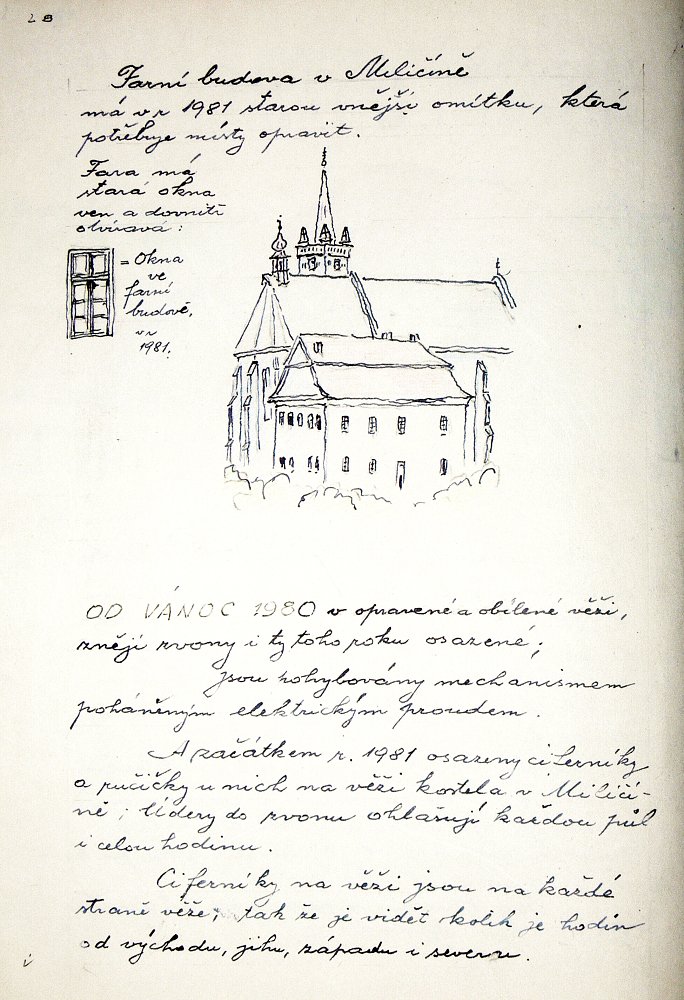 28
Farní budova v Miličíně
má v r 1981 starou vnější omítku, která
potřebuje místy opravit.
Fara má
stará okna
ven a dovnitř
otvíravá :
= Okna
ve
farní
budově,
v r
1981.
OD VÁNOC 1980 v opravené a obílené věži,
znějí zvony i ty toho roku osazené;
jsou pohybovány mechanismem
poháněným elektrickým proudem.
A začátkem r. 1981 osazeny ciferníky
a ručičky u nich na věži kostela v Miličí-
ně; údery do zvonu ohlašují každou půl
i celou hodinu.
Ciferníky na věži jsou na každé
straně věže; tak že je vidět kolik je hodin
od východu, jihu, západu i severu.